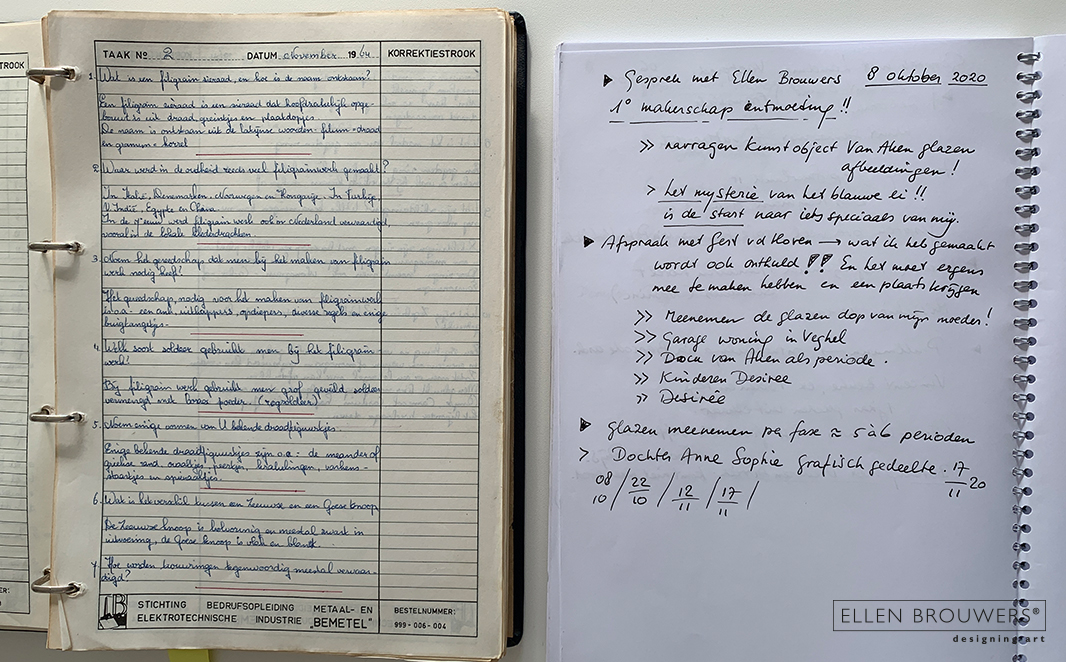 STROOK
TAAK No 2 DATUM November 1964 KORREKTIESTROOK
1. Wat is een filigrain sieraad, en hoe is de naam ontstaan?
Een filigrain sieraad is een sieraad dat hoofdzakelijk opge-
bouwd is uit draad greintjes en plaatdopjes
De naam is ontstaan uit de latijnse woorden - filum = draad
en granum = korrel
2. Waar werd in de oudheid reeds veel filigrainwerk gemaakt?
In Italië, Denemarken, Noorwegen en Hongarije. In Turkije,
V. Indië, Egypte en China.
In de eeuw werd filigrain werk ook in Nederland vervaardigd,
vooral in de lokale klederdrachten.
3. Noem het gereedschap dat men bij het maken van filigrain
werk nodig heeft?
Het gereedschap, nodig voor het maken van filigrainwerk
is o.a. - een aambeeld, diverse en enige
buigtangetjes.
4. Welk soort soldeer gebruikt men bij het filigrain-
werk?
Bij filigrain werk gebruikt men grof gevijld soldeer
vermengd met borax poeder. (
5. Noem enige vormen van U bekende draadfiguurtjes.
Enige bekende draadfiguurtjes zijn o.a. = de meander of
griekse rand, ovaaltjes, krakelingen, varkens-
staartjes en
6. Wat is het verschil tussen een Zeeuwse en een Goese knoop
De Zeeuwse knoop is bolvormig en meestal zwart in
uitvoering, de Goese knoop is vlak en blank.
7. Hoe worden trouwringen tegenwoordig meestal vervaar-
digd?
STICHTING BEDRIJFSOPLEIDING METAAL- EN
ELEKTROTECHNISCHE INDUSTRIE „BEMETEL”
BESTELNUMMER:
999-006-004
Gesprek met Ellen Brouwers 8 oktober 2020
1° makerschap ontmoeting !!
>> navragen Kunstobject Van Aken glazen
afbeeldingen !
> het mysterie van het blauwe ei !!
is de start naar iets speciaals van mij.
Afspraak met Gert vd Hoven → wat ik heb gemaakt
wordt ook onthuld !! En het moet ergens
mee te maken hebben en een plaats krijgen
>> Meenemen de glazen dop van mijn moeder!
>> Garage woning in Veghel
>> Dock van Aken als periode.
>> Kinderen Desiree
>> Desirée
glazen meenemen per fase ≈ 5 à 6 perioden
> Dochter Anne Sophie grafisch gedeelte. 17/11 20
08/10 / 22/10 / 12/11 / 17/11 /
ELLEN BROUWERS®
designing art